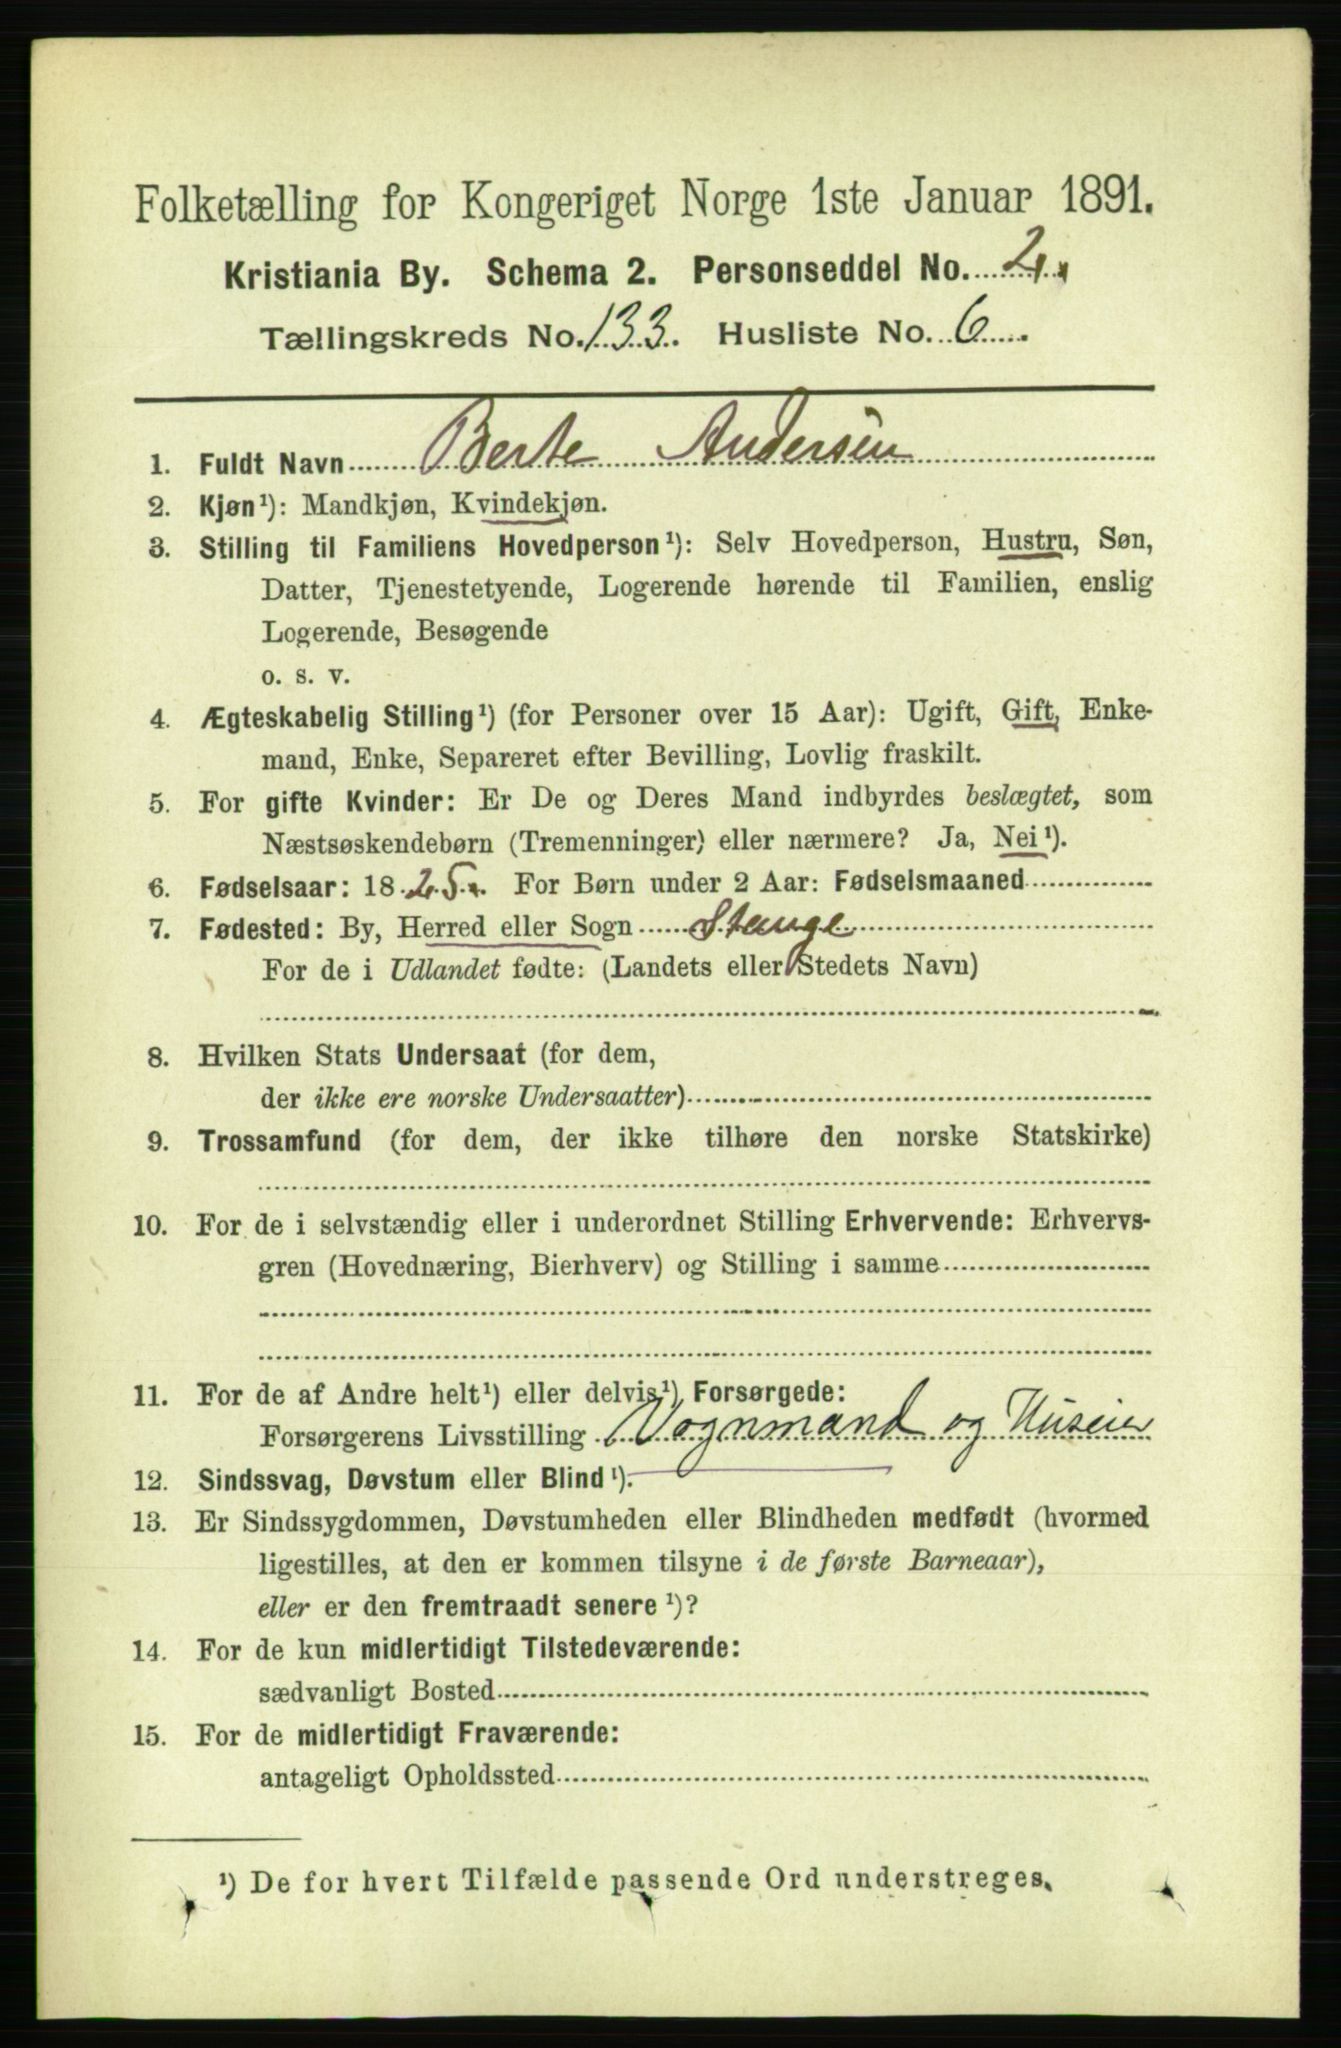 Folketælling for Kongeriget Norge 1ste Januar 1891.
Kristiania By. Schema 2. Personseddel No. 2.
Tællingskreds No. 133. Husliste No. 6
1. Fuldt Navn Berte Andersen
2. Kjøn¹): Mandkjøn, Kvindekjøn.
3. Stilling til Familiens Hovedperson¹): Selv Hovedperson, Hustru, Søn,
Datter, Tjenestetyende, Logerende hørende til Familien, enslig
Logerende, Besøgende
o. s. v.
4. Ægteskabelig Stilling¹) (for Personer over 15 Aar): Ugift, Gift, Enke-
mand, Enke, Separeret efter Bevilling, Lovlig fraskilt.
5. For gifte Kvinder: Er De og Deres Mand indbyrdes beslægtet, som
Næstsøskendebørn (Tremenninger) eller nærmere? Ja, Nei¹).
6. Fødselsaar: 1825. For Børn under 2 Aar: Fødselsmaaned
7. Fødested: By, Herred eller Sogn Stange
For de i Udlandet fødte: (Landets eller Stedets Navn)
8. Hvilken Stats Undersaat (for dem,
der ikke ere norske Undersaatter)
9. Trossamfund (for dem, der ikke tilhøre den norske Statskirke)
10. For de i selvstændig eller i underordnet Stilling Erhvervende: Erhvervs-
gren (Hovednæring, Bierhverv) og Stilling i samme
11. For de af Andre helt¹) eller delvis¹) Forsørgede:
Forsørgerens Livsstilling Vognmand og Huseier
12. Sindssvag, Døvstum eller Blind¹).
13. Er Sindssygdommen, Døvstumheden eller Blindheden medfødt (hvormed
ligestilles, at den er kommen tilsyne i de første Barneaar),
eller er den fremtraadt senere¹)?
14. For de kun midlertidigt Tilstedeværende:
sædvanligt Bosted
15. For de midlertidigt Fraværende:
antageligt Opholdssted
¹) De for hvert Tilfælde passende Ord understreges.